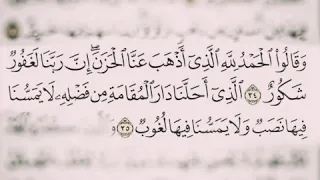 وَقَالُوا۟ ٱلْحَمْدُ لِلَّهِ ٱلَّذِىٓ أَذْهَبَ عَنَّا ٱلْحَزَنَ ۖ إِنَّ رَبَّنَا لَغَفُورٌ
شَكُورٌ ٣٤ ٱلَّذِىٓ أَحَلَّنَا دَارَ ٱلْمُقَامَةِ مِن فَضْلِهِۦ لَا يَمَسُّنَا
فِيهَا نَصَبٌ وَلَا يَمَسُّنَا فِيهَا لُغُوبٌ ٣٥ وَ